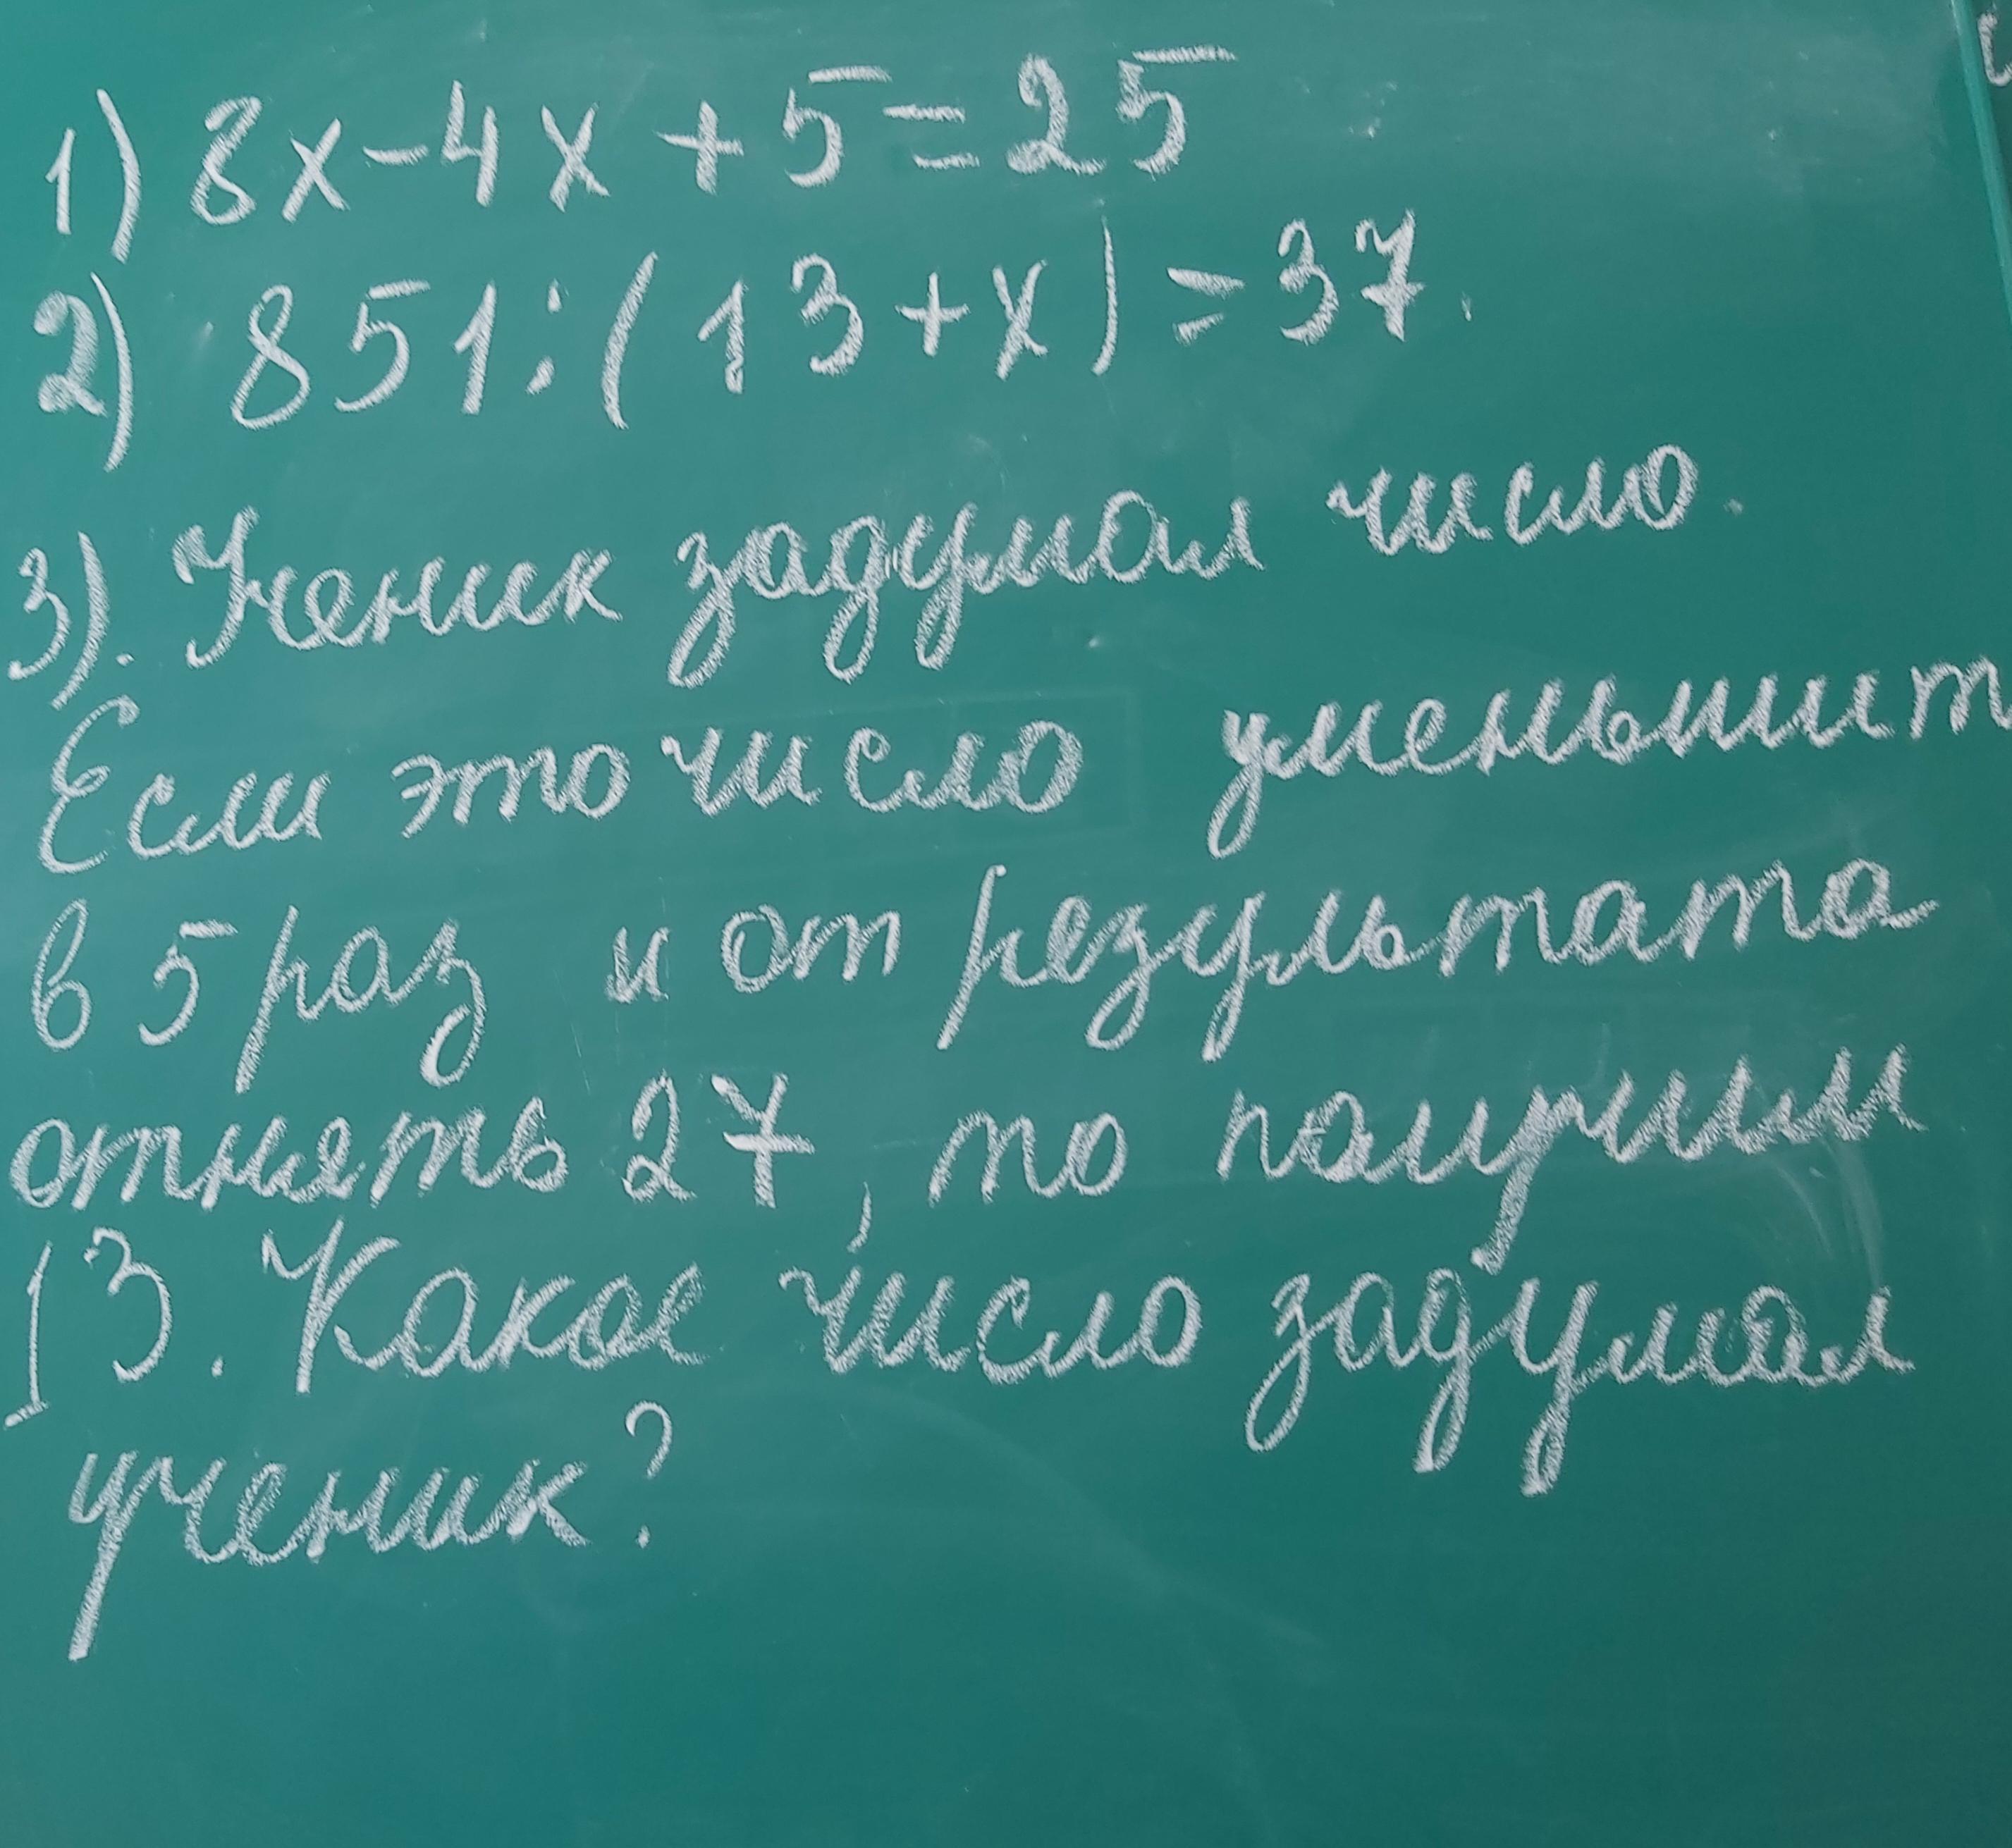 1) 8x-4x+5=25
2) 851:(13+x)=37.
3). Ученик задумал число.
Если это число уменьшит
в 5 раз и от результата
отнять 27, то получим
13. Какое число задумал
ученик?